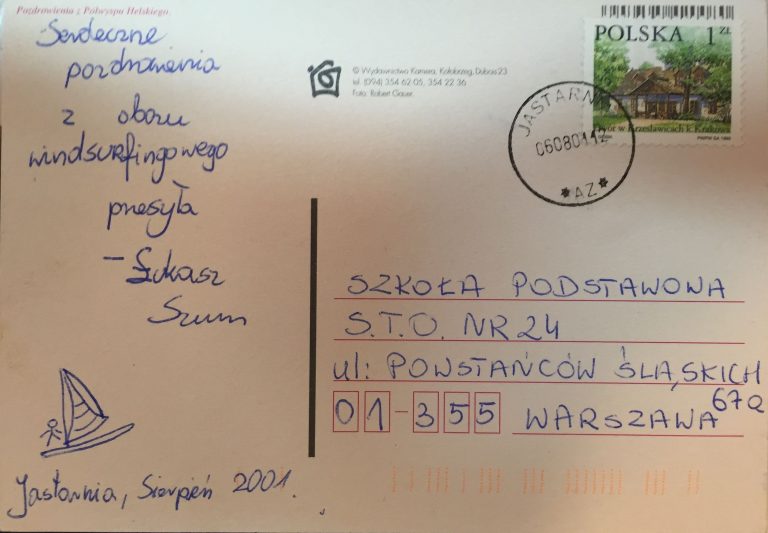 Pozdrowienia z Półwyspu Helskiego.
Serdeczne
pozdrowienia
z obozu
windsurfingowego
przesyła
- Łukasz
Szum
Jastarnia, Sierpień 2001.
© Wydawnictwo Kamera, Kołobrzeg, Dubois 23
tel. (094) 354 62 05, 354 22 36
Foto: Robert Gauer.
POLSKA 1 ZŁ
Dwór w Krzesławicach k. Krakowa
JASTARNIA
06080112
* AZ *
SZKOŁA PODSTAWOWA
S.T.O. NR 24
ul: POWSTAŃCÓW ŚLĄSKICH
67a
01-355 WARSZAWA